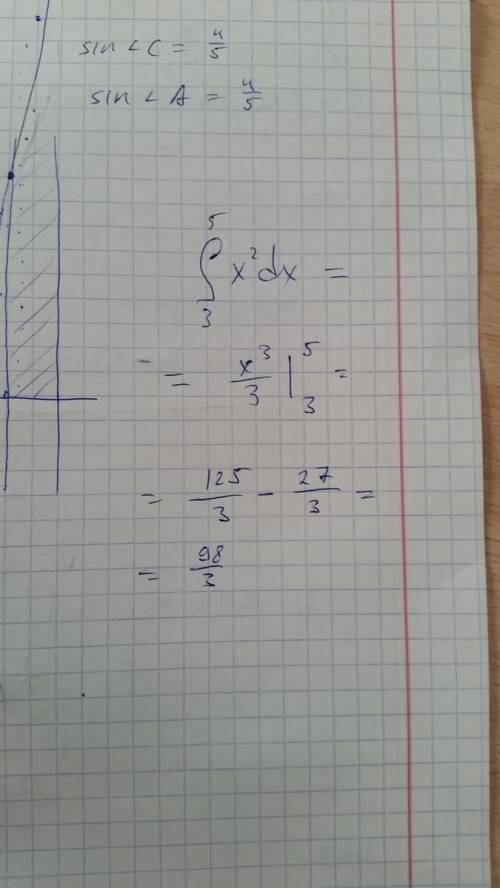 sin ∠C = 4/5
sin ∠A = 4/5
∫₃⁵ x² dx =
= x³/3 |₃⁵ =
= 125/3 - 27/3 =
= 98/3